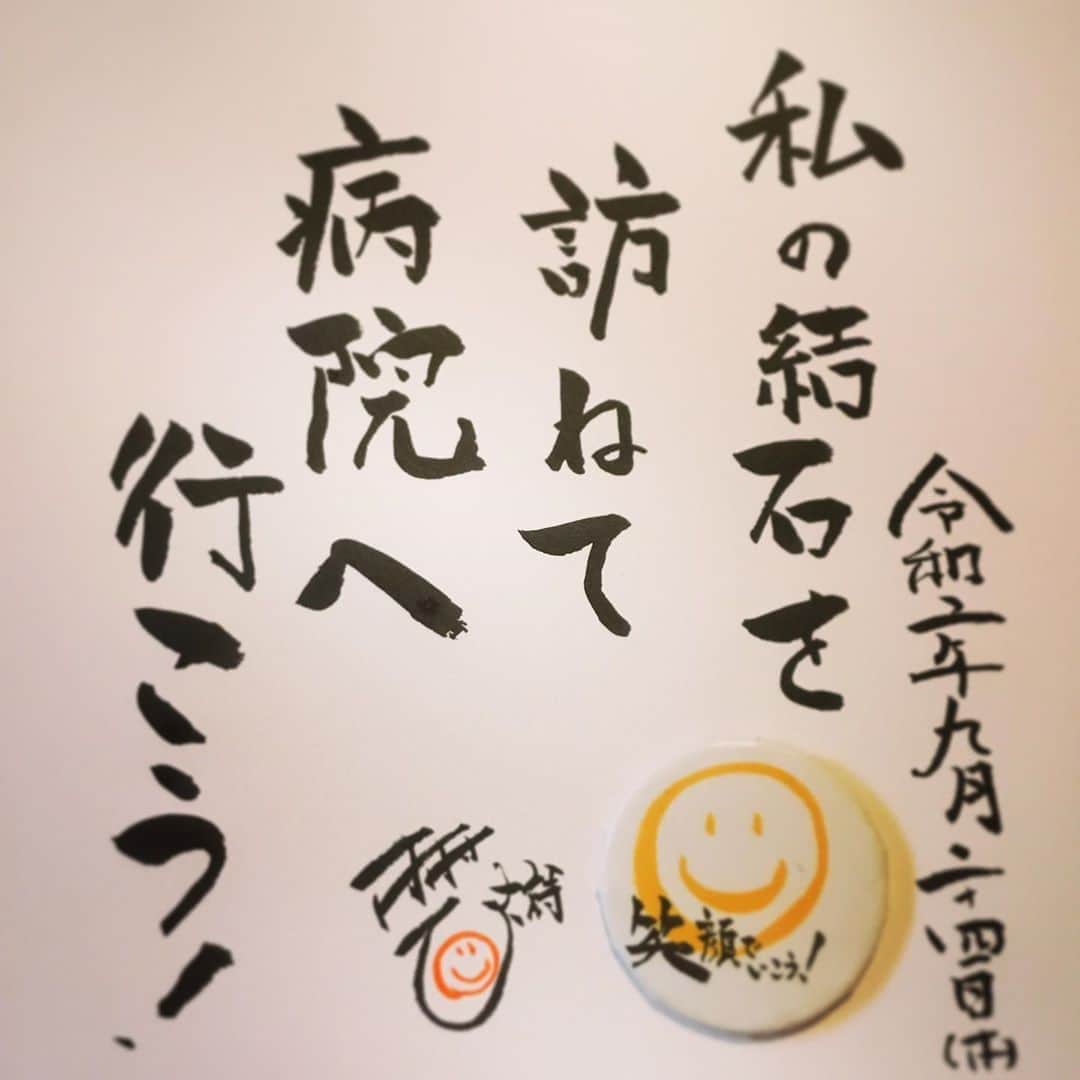 令和二年九月二十四日(木)
私の結石を
訪ねて
病院へ
行こう!
笑顔で
いこう!